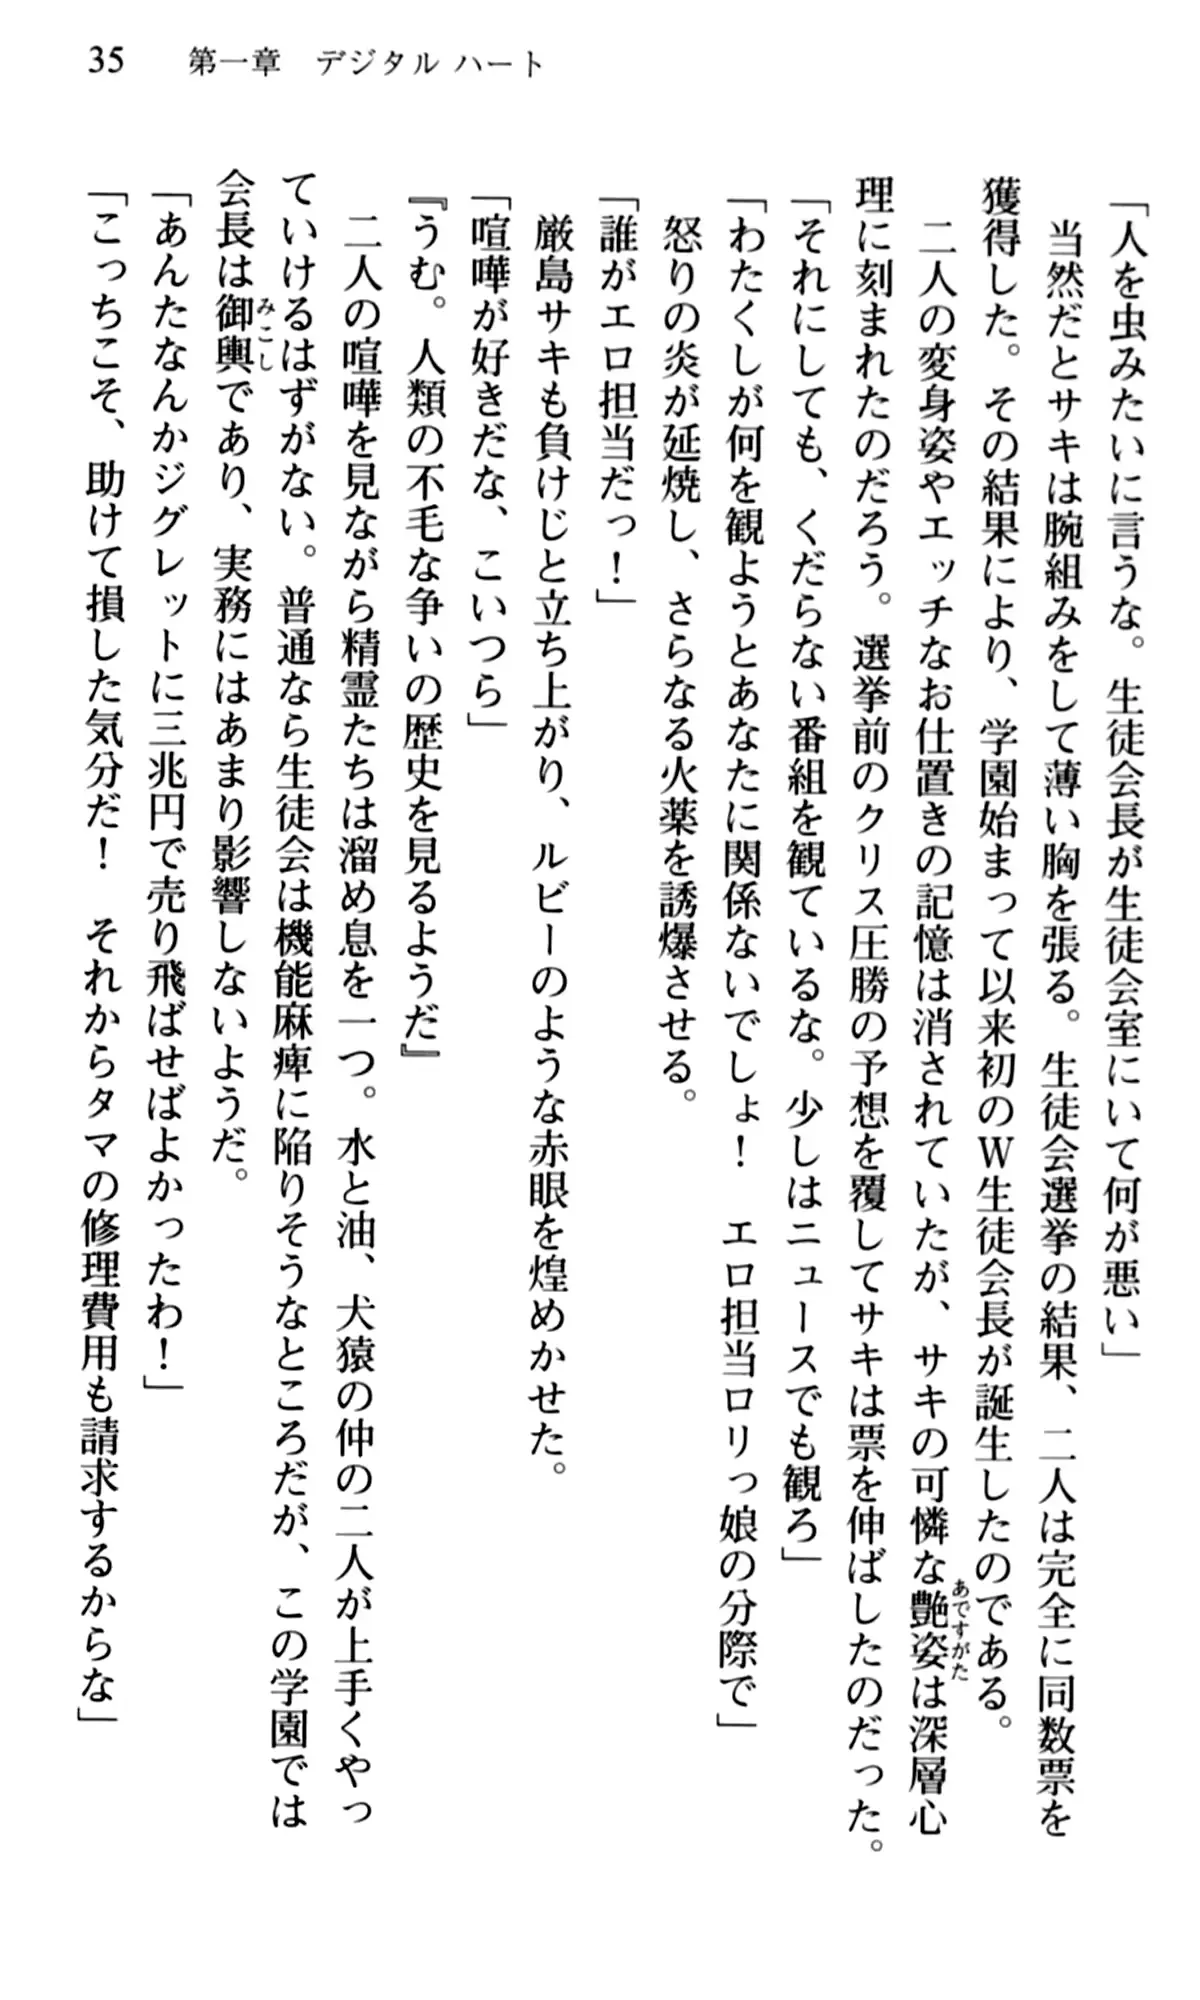 35　第一章　デジタル ハート
「人を虫みたいに言うな。生徒会長が生徒会室にいて何が悪い」
　当然だとサキは腕組みをして薄い胸を張る。生徒会選挙の結果、二人は完全に同数票を
獲得した。その結果により、学園始まって以来初のＷ生徒会長が誕生したのである。
　二人の変身姿やエッチなお仕置きの記憶は消されていたが、サキの可憐な艶姿は深層心
あですがた
理に刻まれたのだろう。選挙前のクリス圧勝の予想を覆してサキは票を伸ばしたのだった。
「それにしても、くだらない番組を観ているな。少しはニュースでも観ろ」
「わたくしが何を観ようとあなたに関係ないでしょ！　エロ担当ロリっ娘の分際で」
　怒りの炎が延焼し、さらなる火薬を誘爆させる。
「誰がエロ担当だっ！」
　厳島サキも負けじと立ち上がり、ルビーのような赤眼を煌めかせた。
「喧嘩が好きだな、こいつら」
『うむ。人類の不毛な争いの歴史を見るようだ』
　二人の喧嘩を見ながら精霊たちは溜め息を一つ。水と油、犬猿の仲の二人が上手くやっ
ていけるはずがない。普通なら生徒会は機能麻痺に陥りそうなところだが、この学園では
会長は御輿であり、実務にはあまり影響しないようだ。
みこし
「あんたなんかジグレットに三兆円で売り飛ばせばよかったわ！」
「こっちこそ、助けて損した気分だ！　それからタマの修理費用も請求するからな」